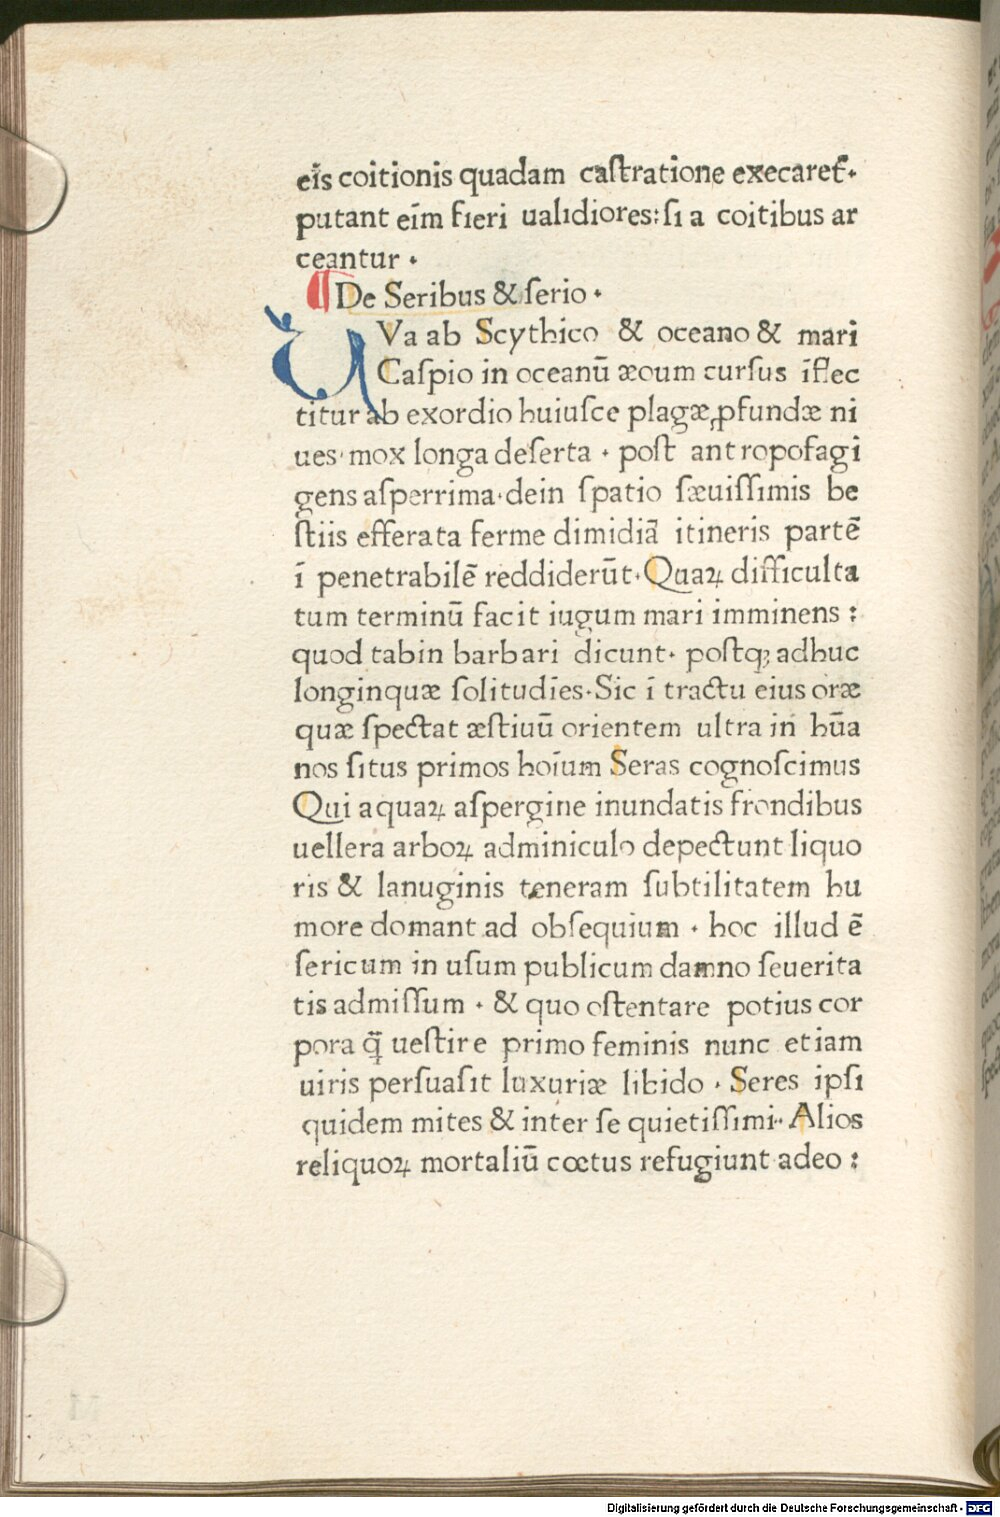 eı̄s coitionis quadam caſtratione execareſ·
putant eı̄m fieri ualidiores: ſi a coitibus ar
ceantur ·
¶ De Seribus & ſerio ·
QVa ab Scythico & oceano & mari
Caſpio in oceanū æoum curſus īflec
titur ab exordio huiuſce plagæ ꝓfundæ ni
ues· mox longa deſerta · poſt antropofagi
gens aſperrima· dein ſpatio ſæuiſſimis be
ſtiis efferata ferme dimidiā itineris partē
ī penetrabilē reddiderūt· Quaꝝ difficulta
tum terminū facit iugum mari imminens :
quod tabin barbari dicunt· poſtqꝫ adhuc
longinquæ ſolitudīes· Sic ī tractu eius oræ
quæ ſpectat æſtiuū orientem ultra in hūa
nos ſitus primos hoı̄um Seras cognoſcimus
Qui aquaꝝ aſpergine inundatis frondibus
uellera arboꝝ adminiculo depectunt liquo
ris & lanuginis teneram ſubtilitatem hu
more domant ad obſequium · hoc illud ē
ſericum in uſum publicum damno ſeuerita
tis admiſſum · & quo oſtentare potius cor
pora q̄ꝫ ueſtire primo feminis nunc etiam
uiris perſuaſit luxuriæ libido · Seres ipſi
quidem mites & inter ſe quietiſſimi·· Alios
reliquoꝝ mortaliū cœtus refugiunt adeo :
Digitalisierung gefördert durch die Deutsche Forschungsgemeinschaft - DFG